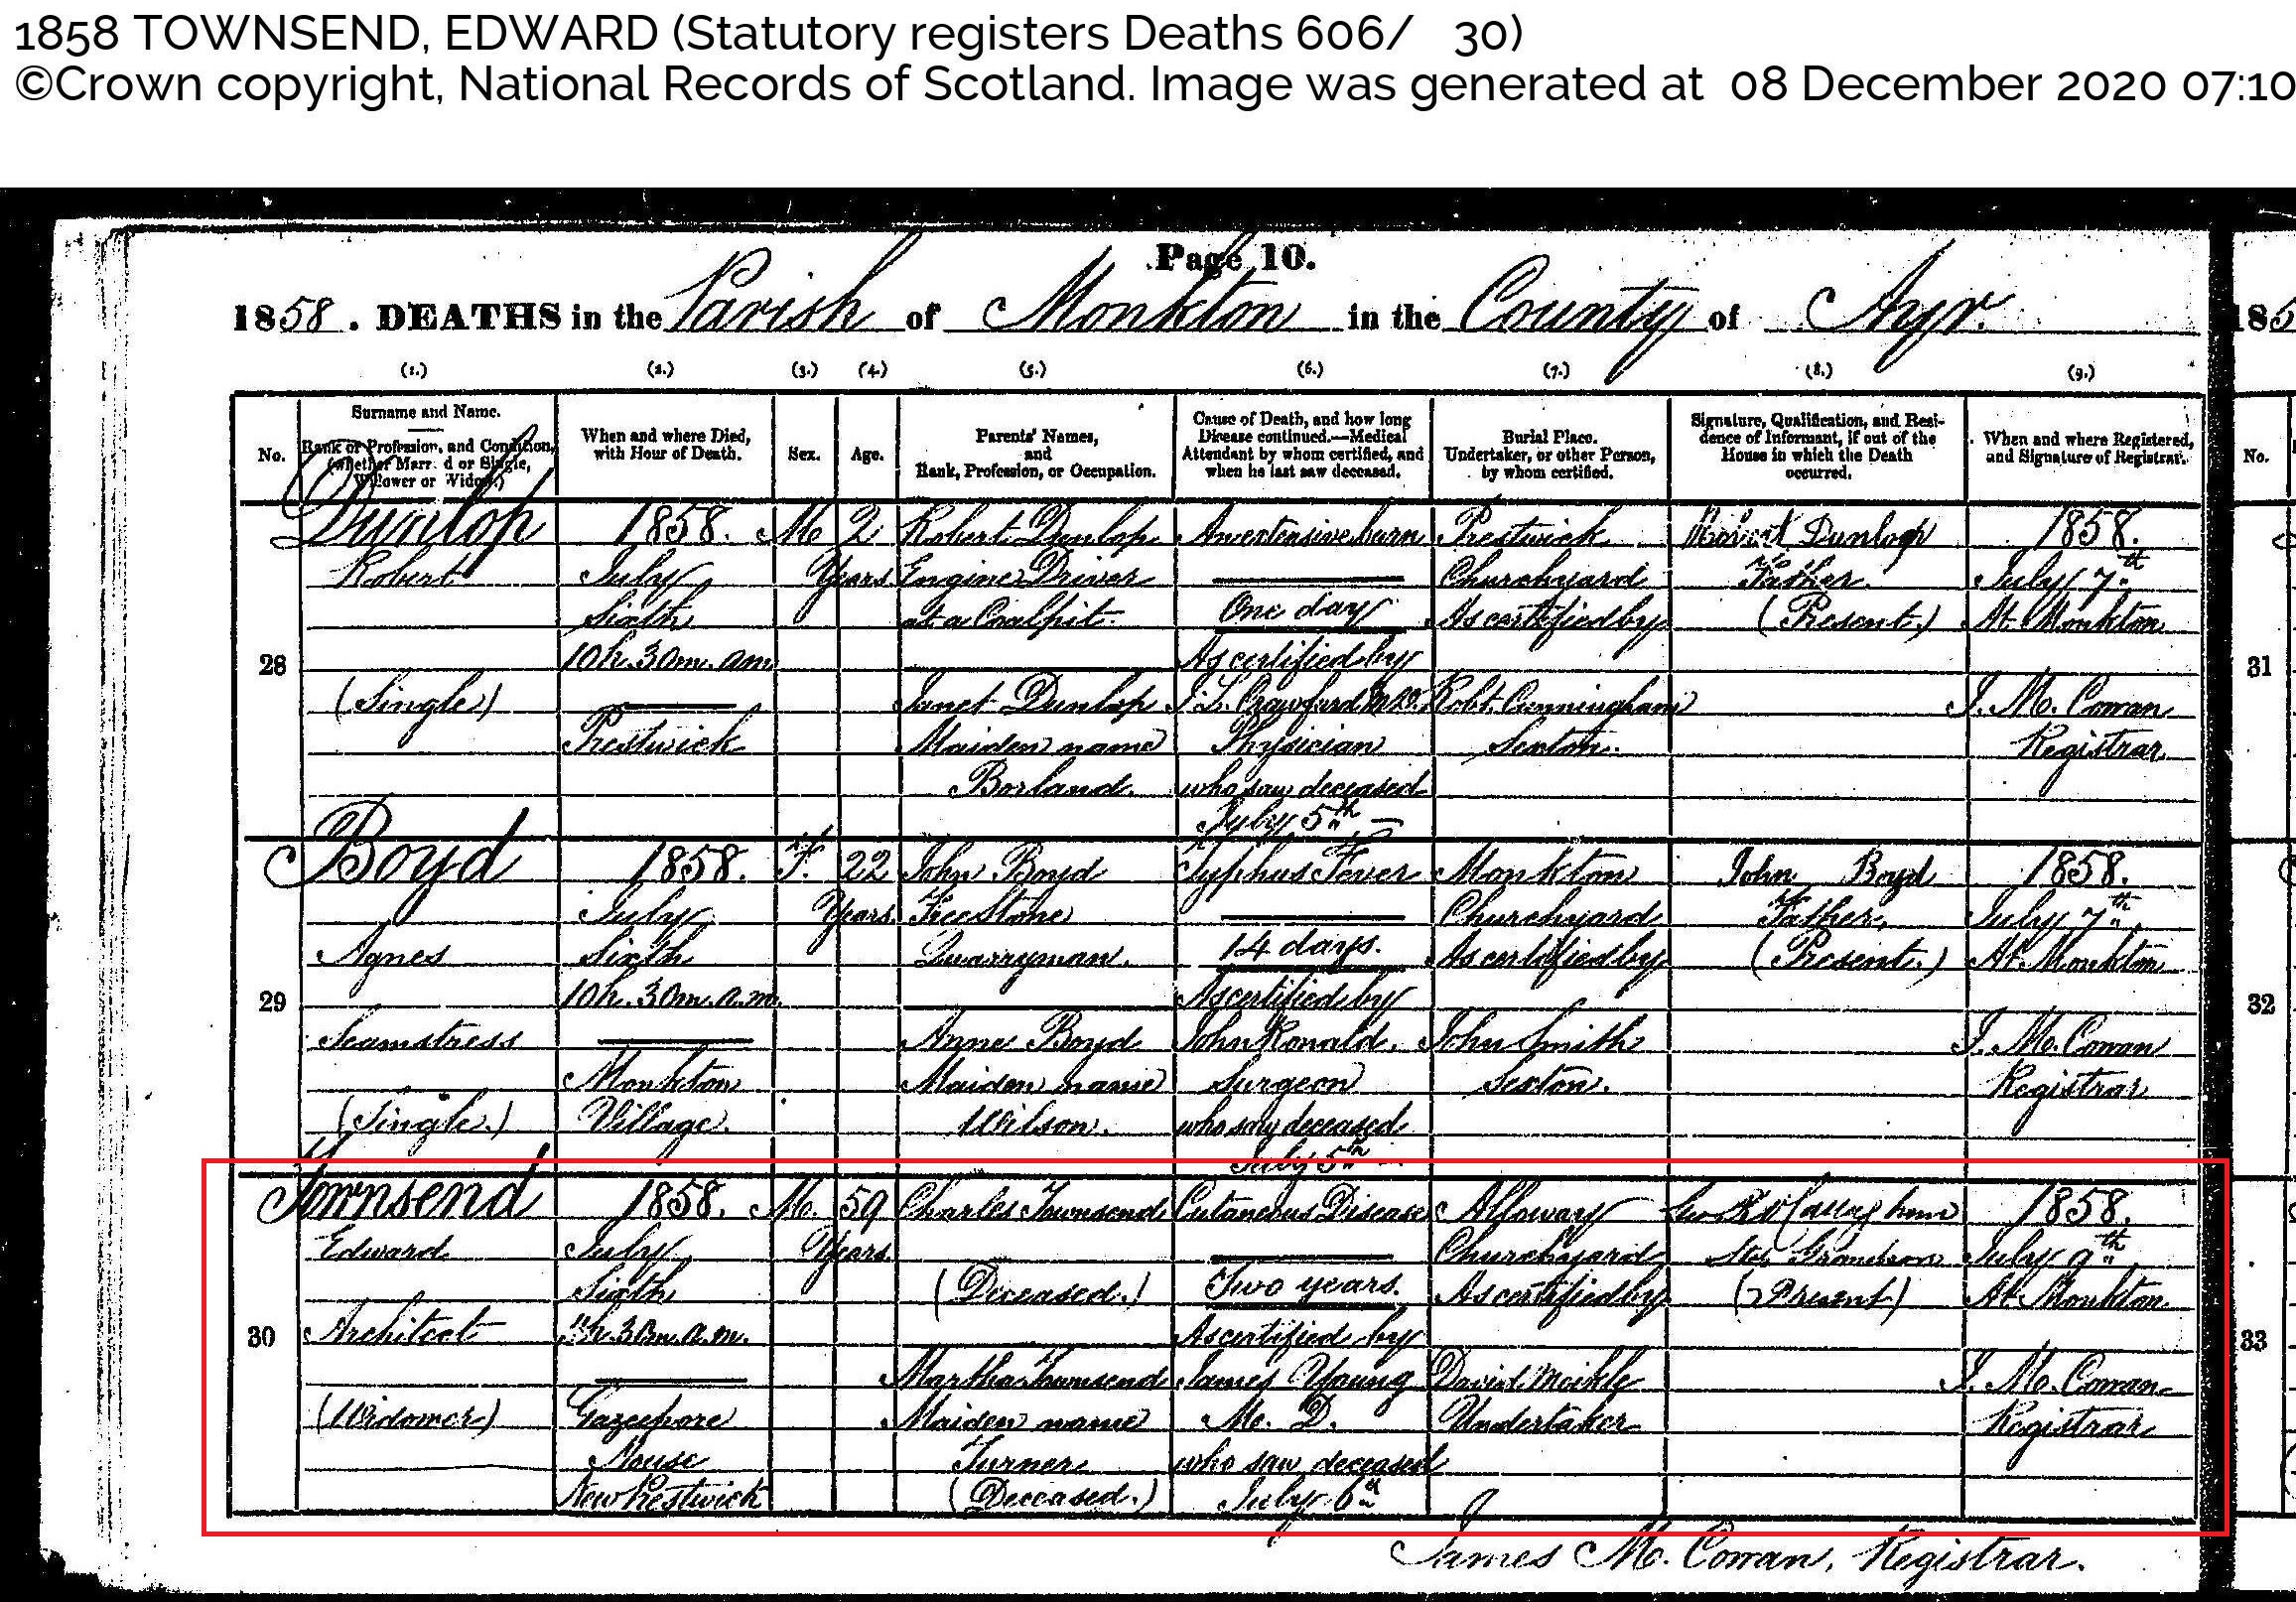 1858 TOWNSEND, EDWARD (Statutory registers Deaths 606/ 30)
©Crown copyright, National Records of Scotland. Image was generated at 08 December 2020 07:10
Page 10.
1858. DEATHS in the Parish of Monkton in the County of Ayr.
185
(1.) (2.) (3.) (4.) (5.) (6.) (7.) (8.) (9.)
No.
Surname and Name.
Rank or Profession, and Condition,
(whether Married or Single,
Widower or Widow.)
When and where Died,
with Hour of Death.
Sex.
Age.
Parents' Names,
and
Rank, Profession, or Occupation.
Cause of Death, and how long
Disease continued.—Medical
Attendant by whom certified, and
when he last saw deceased.
Burial Place.
Undertaker, or other Person,
by whom certified.
Signature, Qualification, and Resi-
dence of Informant, if out of the
House in which the Death
occurred.
When and where Registered,
and Signature of Registrar.
No.
28
Dunlop
Robert
(Single)
1858.
July
Sixth
10h. 30m. am
Prestwick
M
2
Years
Robert Dunlop
Engine Driver
at a Coalpit.
Janet Dunlop
Maiden name
Borland.
An extensive burn
One day
As certified by
Crawford
Physician
who saw deceased
July 5th
Prestwick
Churchyard
As certified by
Robt. Cunningham
Sexton.
Robert Dunlop
Father.
(Present.)
1858.
July 7th
At Monkton
J. M. Cowan
Registrar
31
29
Boyd
Agnes
Seamstress
(Single.)
1858.
July
Sixth
10h. 30m. a.m.
Monkton
Village.
F.
22
Years
John Boyd
Freestone
Quarryman.
Anne Boyd
Maiden name
Wilson.
Typhus Fever
14 days.
As certified by
John Ronald.
Surgeon
who saw deceased
July 5th
Monkton
Churchyard
As certified by
John Smith
Sexton.
John Boyd
Father,
(Present.)
1858.
July 7th
At Monkton
J. M. Cowan
Registrar
32
30
Townsend
Edward
Architect
(Widower)
1858.
July
Sixth
h. 30m. a.m.
Gazeepore
House
New Prestwick
M.
59
Years
Charles Townsend
(Deceased.)
Martha Townsend
Maiden name
Turner
(Deceased.)
Cutaneous Disease
Two years.
As certified by
James Young
M. D.
who saw deceased
July 6th
Alloway
Churchyard
As certified by
David Meikle
Undertaker
Grandson
(Present)
1858.
July 9th
At Monkton
J. M. Cowan
Registrar
33
James M. Cowan, Registrar.